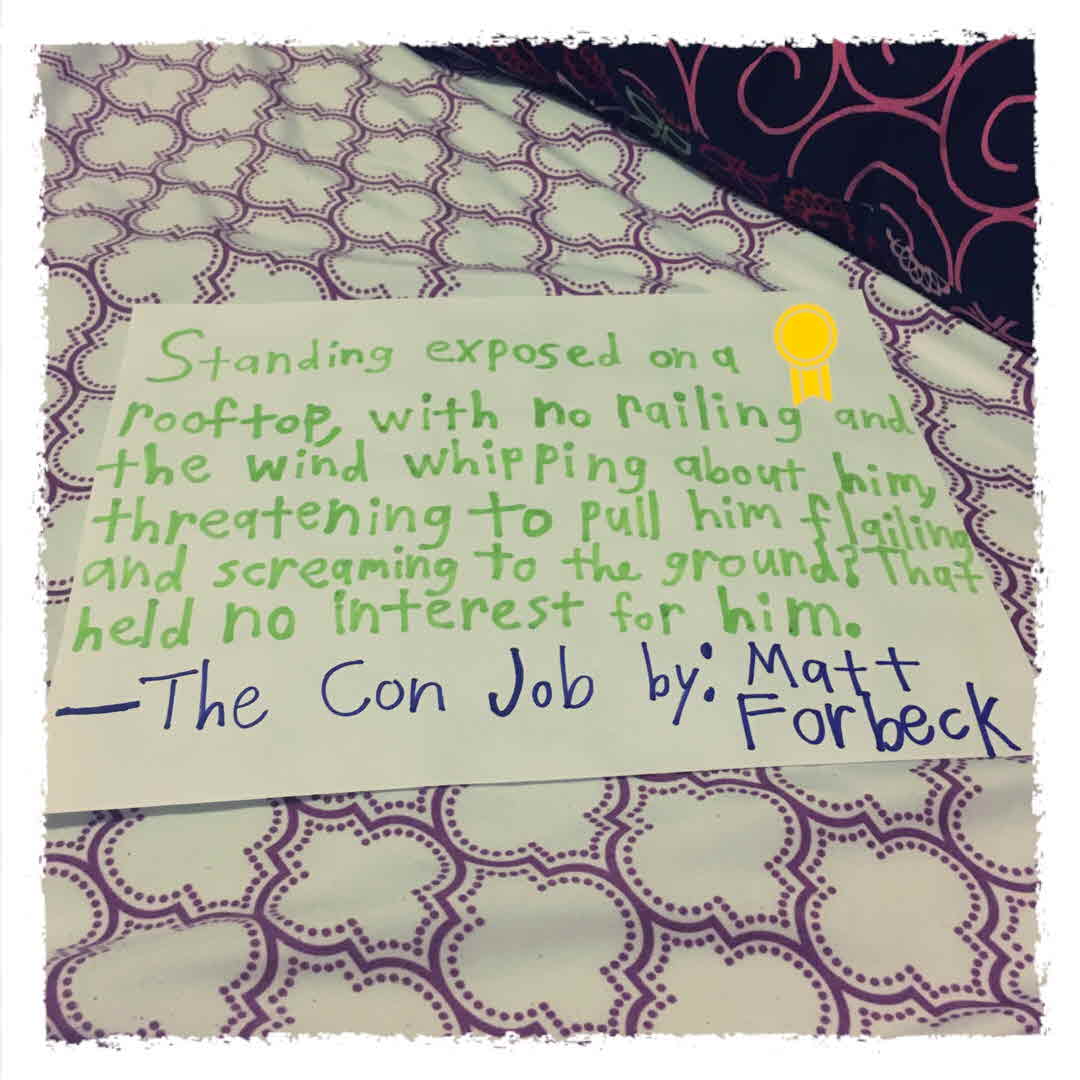 Standing exposed on a
rooftop, with no railing and
the wind whipping about him,
threatening to pull him flailing
and screaming to the ground? That
held no interest for him.
—The Con Job by: Matt
Forbeck